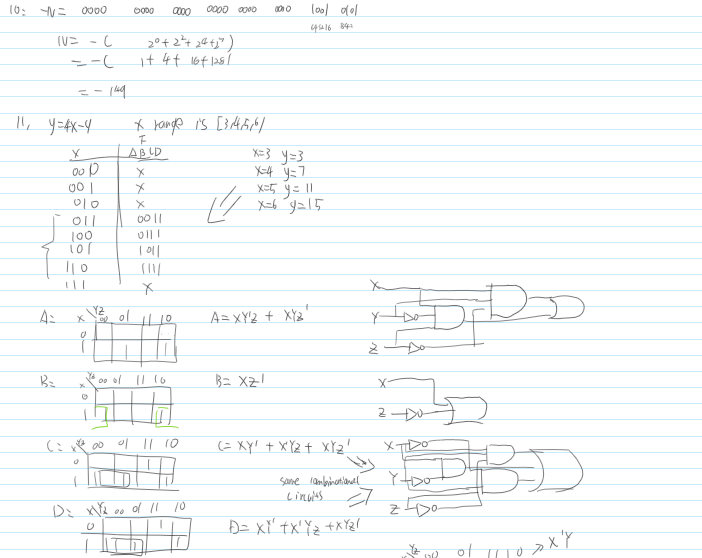 10: -N= 0000 0000 0000 0000 0000 0000 1001 0101
N= -( 2^0 + 2^2 + 2^4 + 2^7 )
= -( 1 + 4 + 16 + 128 )
= - 149
11, y=4x-9 x range is [3,4,5,6]
F
X ABCD
000 X
001 X
010 X
011 0011
100 0111
101 1011
110 1111
111 X
x=3 y=3
x=4 y=7
x=5 y=11
x=6 y=15
A: X YZ 00 01 11 10 A= XY'Z + XYZ'
0
1 1 1
X
Y
Z
B: X YZ 00 01 11 10 B= XZ'
0
1 1 1
X
Z
C: X YZ 00 01 11 10 C= XY' + XYZ + XYZ'
0 1
1 1 1 1
X
Y
Z
same combinational
circuits
D: X YZ 00 01 11 10 D= XY' + X'YZ + XYZ'
0 1
1 1 1 1
YZ 00 01 11 10 X'Y